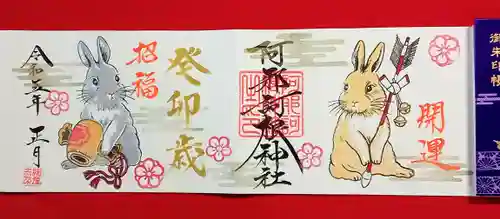 御朱印帳
開運
阿邪訶根神社
癸卯歳
招福
令和五年 正月